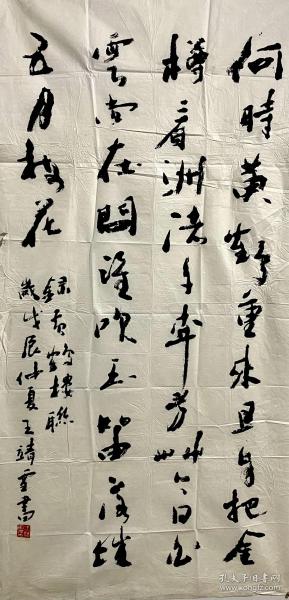 何時黄鶴重來且自把金
樽看洲渚千年芳艸今日白
雲尚在問誰吹玉笛落城
五月梅花
錄黄鶴樓聯
歲戊辰仲夏王靖書
孔夫子旧书网